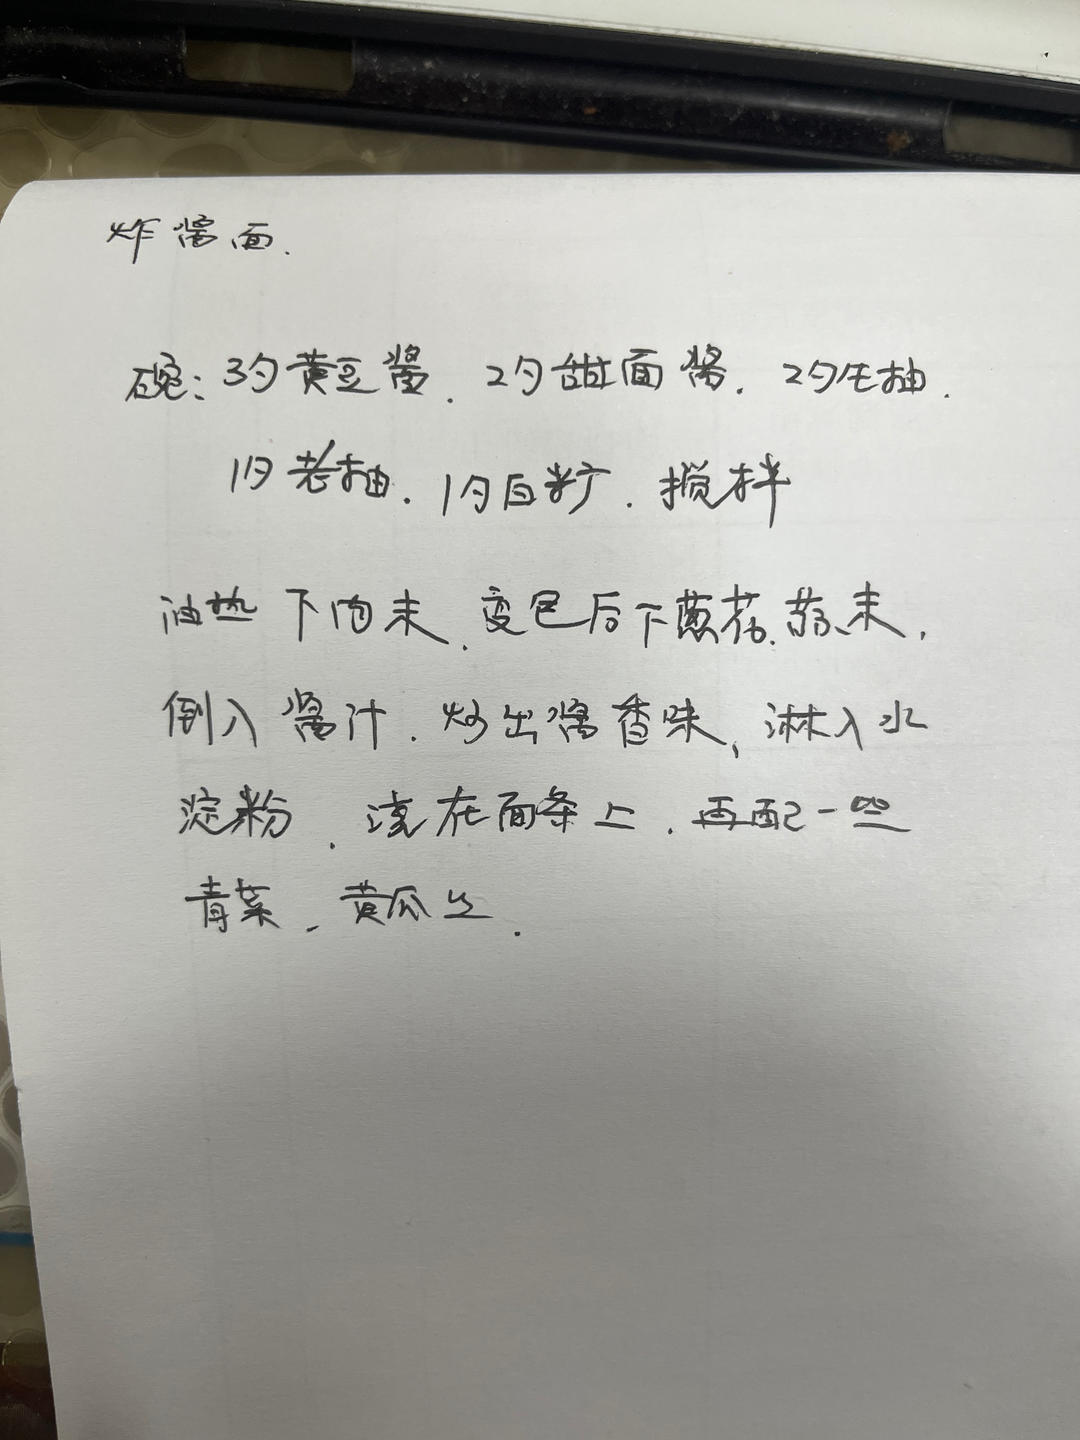 炸酱面.
碗: 3勺黄豆酱. 2勺甜面酱. 2勺生抽.
1勺老抽. 1勺白糖. 搅拌
油热 下肉末, 变色后下葱花.蒜末,
倒入酱汁. 炒出酱香味, 淋入水
淀粉. 浇在面条上. 再配一些
青菜. 黄瓜丝.